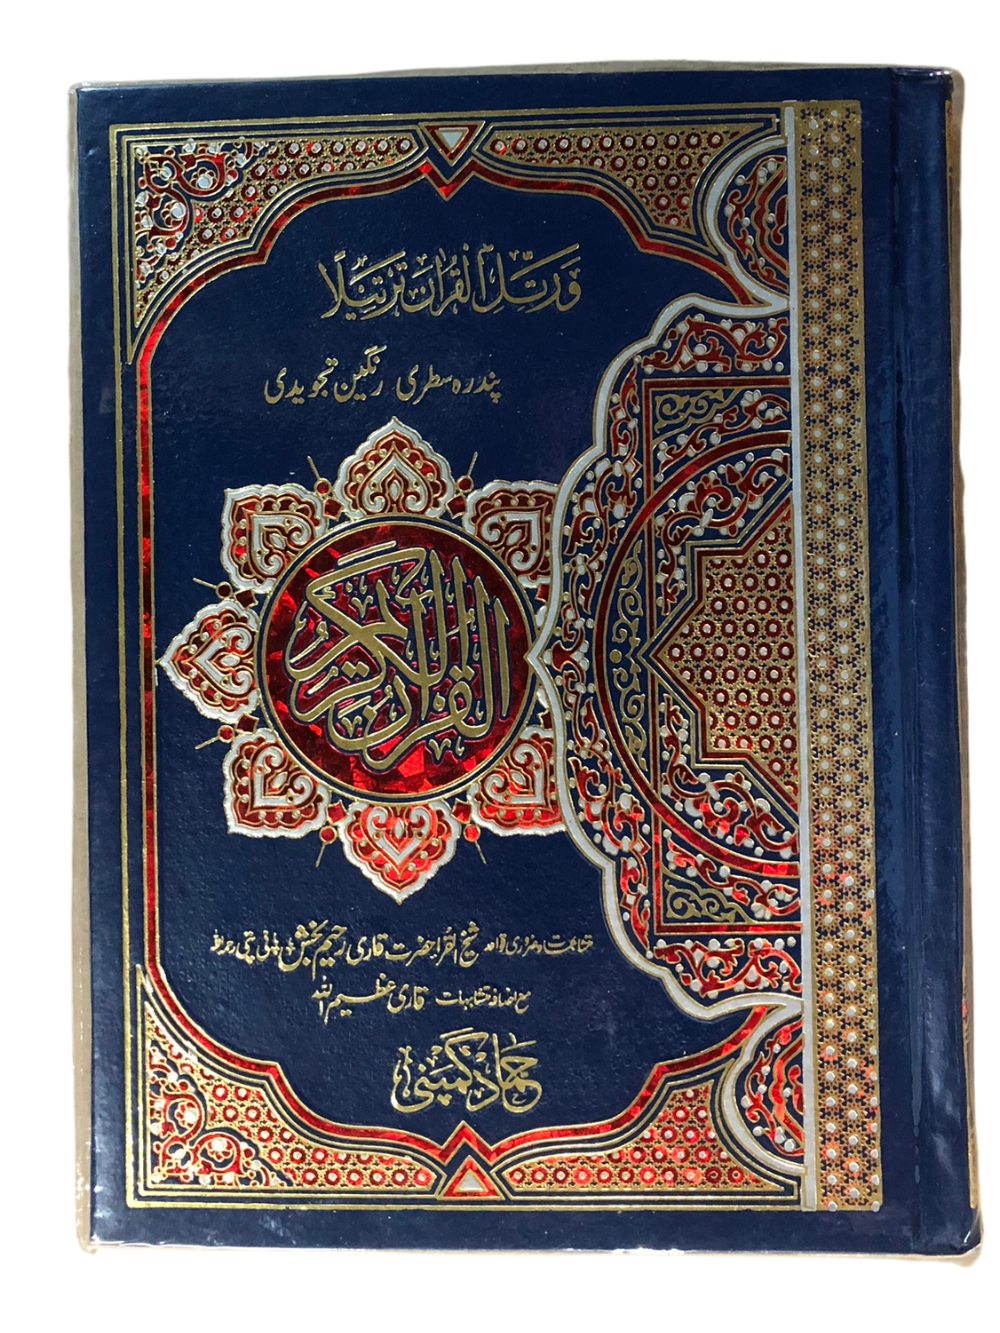 وَرَتِّلِ الْقُرْاٰنَ تَرْتِیْلًا
پندرہ سطری رنگین تجویدی
القرآن الکریم
متشابہات وضروری قواعد شیخ القراء حضرت قاری رحیم بخش پانی پتی
مع اضافہ متشابہات قاری عظیم اللہ
حماد کمپنی